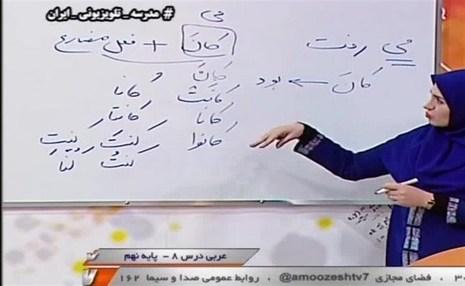 #مدرسه_تلویزیونی_ایران
می
کانَ + فعل مضارع
می رفت
کانَ ← بود
کانَ
کانَتْ کانا
کانا کانتا
کانوا کنتَ
کنتُ کنّا
عربی درس ۸ - پایه نهم
فضای مجازی @amoozeshtv7 ، روابط عمومی صدا و سیما ۱۶۲